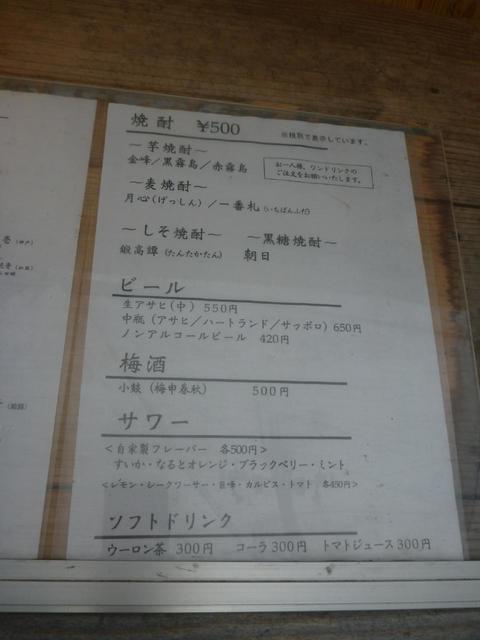 焼酎 ¥500
※税別で表示しています。
～芋焼酎～
金峰/黒霧島/赤霧島
お一人様、ワンドリンクの
ご注文をお願いいたします。
～麦焼酎～
月心(げっしん)/一番札(いちばんふだ)
～しそ焼酎～ ～黒糖焼酎～
鍛高譚(たんたかたん) 朝日
ビール
生アサヒ(中) 550円
中瓶(アサヒ/ハートランド/サッポロ)650円
ノンアルコールビール 420円
梅酒
小鼓(梅申春秋) 500円
サワー
<自家製フレーバー 各500円>
すいか・なるとオレンジ・ブラックベリー・ミント
<レモン・シークワーサー・巨峰・カルピス・トマト 各450円>
ソフトドリンク
ウーロン茶 300円 コーラ300円 トマトジュース300円